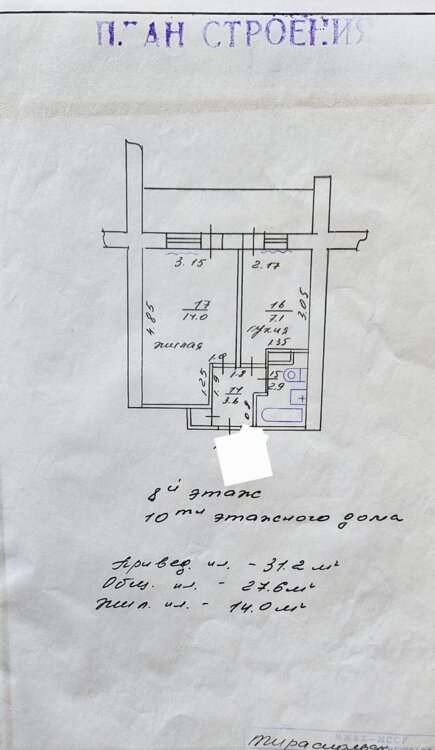 ПЛАН СТРОЕНИЯ
3.15
2.17
4.85
17
14.0
жилая
16
7.1
кухня
3.05
1.35
1.0
1.8
1.25
1.9
14
3.6
15
2.9
8й этаж
10ти этажного дома
Привед. пл. - 31.2 м²
Общ. пл. - 27.6 м²
Жил. пл. - 14.0 м²
МЖКХ-МССР
Тираспольск